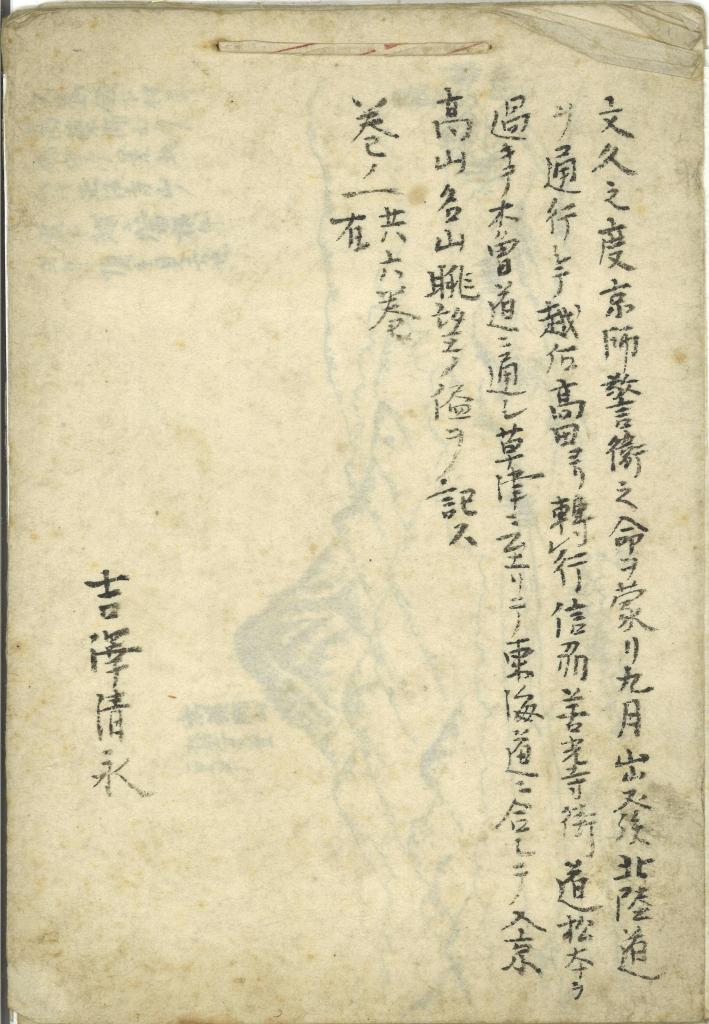 文久之度京師警衛之命ヲ蒙リ九月出發北陸道
ヲ通行シテ越后高田ヨリ轉行信州善光寺街道松本ヲ
過キテ木曽道ニ通シ草津ニ至リテ東海道ニ合シテ入京
高山名山眺望ノ
記ス
巻ノ一
共六巻
有
吉澤清永